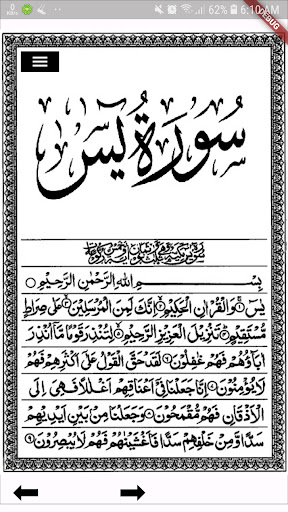 62% 6:10 AM
DEBUG
سُورَةُ يٰسٓ
بِسْمِ اللهِ الرَّحْمٰنِ الرَّحِيْمِ
يٰسٓ ۝ وَالْقُرْاٰنِ الْحَكِيْمِ ۝ اِنَّكَ لَمِنَ الْمُرْسَلِيْنَ ۝ عَلٰى صِرَاطٍ
مُّسْتَقِيْمٍ ۝ تَنْزِيْلَ الْعَزِيْزِ الرَّحِيْمِ ۝ لِتُنْذِرَ قَوْمًا مَّآ اُنْذِرَ
اٰبَآؤُهُمْ فَهُمْ غٰفِلُوْنَ ۝ لَقَدْ حَقَّ الْقَوْلُ عَلٰٓى اَكْثَرِهِمْ فَهُمْ
لَا يُؤْمِنُوْنَ ۝ اِنَّا جَعَلْنَا فِيْٓ اَعْنَاقِهِمْ اَغْلٰلًا فَهِيَ اِلَى
الْاَذْقَانِ فَهُمْ مُّقْمَحُوْنَ ۝ وَجَعَلْنَا مِنْۢ بَيْنِ اَيْدِيْهِمْ
سَدًّا وَّمِنْ خَلْفِهِمْ سَدًّا فَاَغْشَيْنٰهُمْ فَهُمْ لَا يُبْصِرُوْنَ ۝